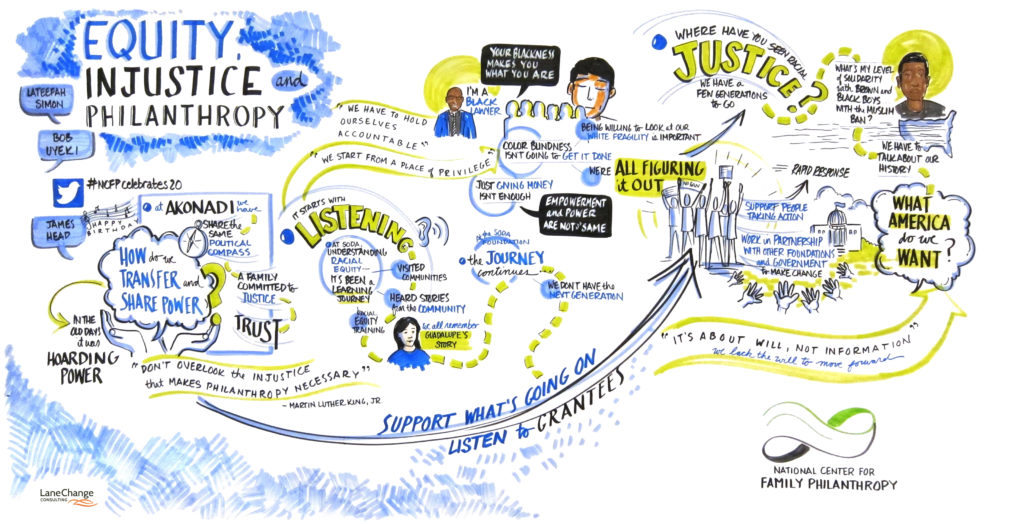 EQUITY,
INJUSTICE and
PHILANTHROPY
LATEEFAH
SIMON
BOB
UYEKI
#NCFPcelebrates20
JAMES
HEAD
HAPPY
BIRTHDAY
at AKONADI we
have
SHARE the
SAME
POLITICAL
COMPASS
HOW do we
TRANSFER and
SHARE POWER
?
A FAMILY
COMMITTED to
JUSTICE
TRUST
IN THE
OLD DAYS
it was
HOARDING
POWER
"DON'T OVERLOOK the INJUSTICE
that MAKES PHILANTHROPY NECESSARY"
- MARTIN LUTHER KING, JR.
"WE HAVE TO HOLD
OURSELVES
ACCOUNTABLE"
"WE START FROM A PLACE of PRIVILEGE"
IT STARTS WITH
LISTENING
AT SODA,
UNDERSTANDING
RACIAL
EQUITY—
IT'S BEEN a
LEARNING
JOURNEY
VISITED
COMMUNITIES
RACIAL
EQUITY
TRAINING
HEARD STORIES
from the COMMUNITY
We all remember
GUADALUPE'S
STORY
YOUR BLACKNESS
MAKES YOU
WHAT YOU ARE
I'M A
BLACK
LAWYER
BEING WILLING to LOOK at OUR
WHITE FRAGILITY is IMPORTANT
COLOR BLINDNESS
ISN'T GOING to GET IT DONE
JUST GIVING MONEY
ISN'T ENOUGH
EMPOWERMENT
and POWER
ARE NOT the SAME
WE'RE
ALL FIGURING
it OUT
At the SODA
FOUNDATION
the JOURNEY
continues...
WE DON'T HAVE the
NEXT GENERATION
SUPPORT WHAT'S GOING ON
LISTEN to GRANTEES
WHERE HAVE YOU SEEN RACIAL
JUSTICE?
WE HAVE a
FEW GENERATIONS
to GO
WHAT'S MY LEVEL
of SOLIDARITY
with BROWN and
BLACK BOYS
WITH the MUSLIM
BAN?
WE HAVE to
TALK ABOUT our
HISTORY
RAPID RESPONSE
SUPPORT PEOPLE
TAKING ACTION
WORK in PARTNERSHIP
WITH OTHER FOUNDATIONS
and GOVERNMENT
to MAKE CHANGE
WHAT
AMERICA
do we
WANT?
"IT'S ABOUT WILL, NOT INFORMATION"
we lack the will to move forward
NATIONAL CENTER FOR
FAMILY PHILANTHROPY
LaneChange
CONSULTING